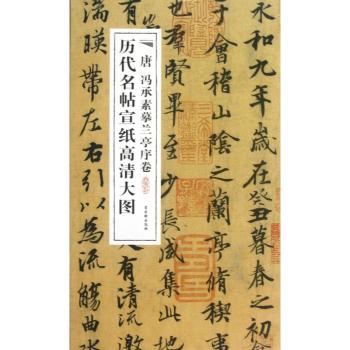 和九年歲在癸丑暮春之初
于會稽山陰之蘭亭脩禊事
也羣賢畢至少長咸集此地
有清流激
湍暎帶左右引以為流觴曲水
唐 冯承素摹兰亭序卷
历代名帖宣纸高清大图